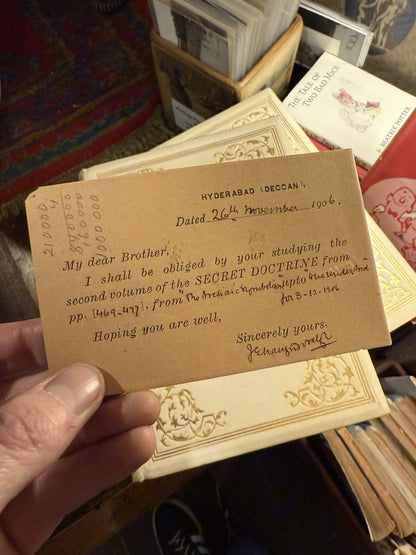 THE TALE OF
TWO BAD MICE
BEATRIX POTTER
HYDERABAD (DECCAN),
Dated 26th November 1906.
My dear Brother,
I shall be obliged by your studying the
second volume of the SECRET DOCTRINE from
pp. [469-477], from "The Archaic Symbolism" up to
for 3-12-1906
Hoping you are well,
Sincerely yours,
210000
4
840000